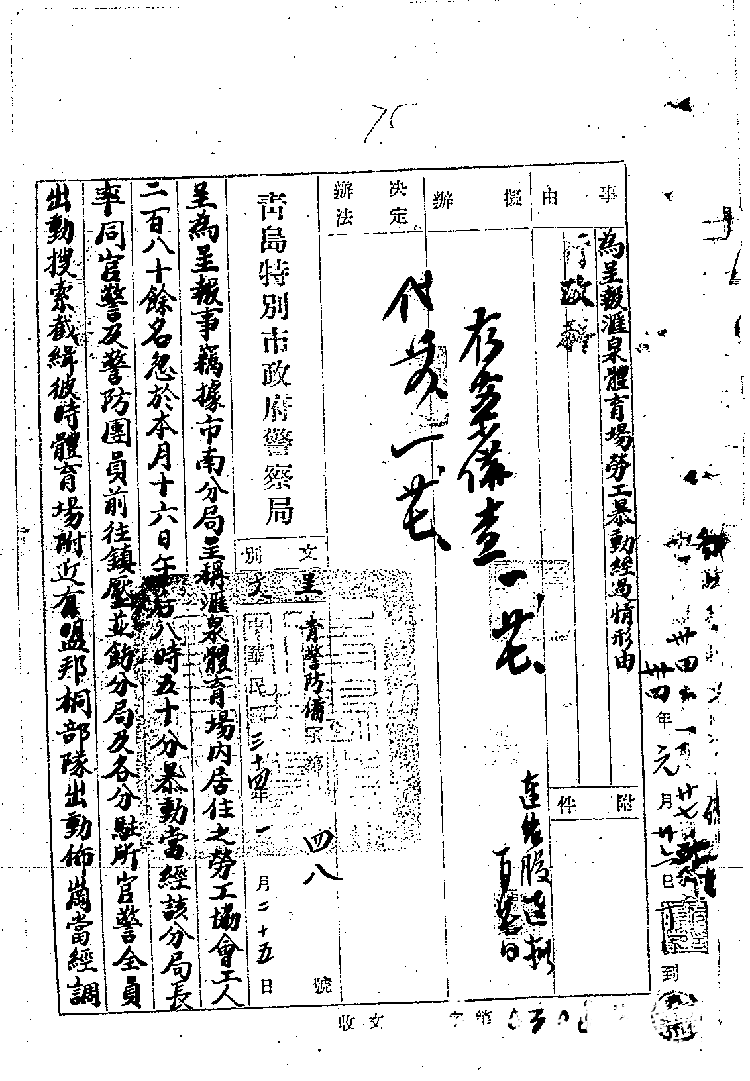 75
事由
為呈報滙泉體育場勞工暴動經過情形由
行政
附件
擬辦
存案備查
決定辦法
付安
青島特別市政府警察局
文別
呈
青警防備字第四八號
中華民國三十四年一月二十五日
呈為呈報事竊據市南分局呈稱滙泉體育場內居住之勞工協會工人
二百八十餘名忽於本月十六日午后八時五十分暴動當經該分局長
率同官警及警防團員前往鎮壓並飭分局及各分駐所官警全員
出動搜索截緝彼時體育場附近有盟邦桐部隊出動佈崗當經調
卅四年元月廿六日
到
收文字第